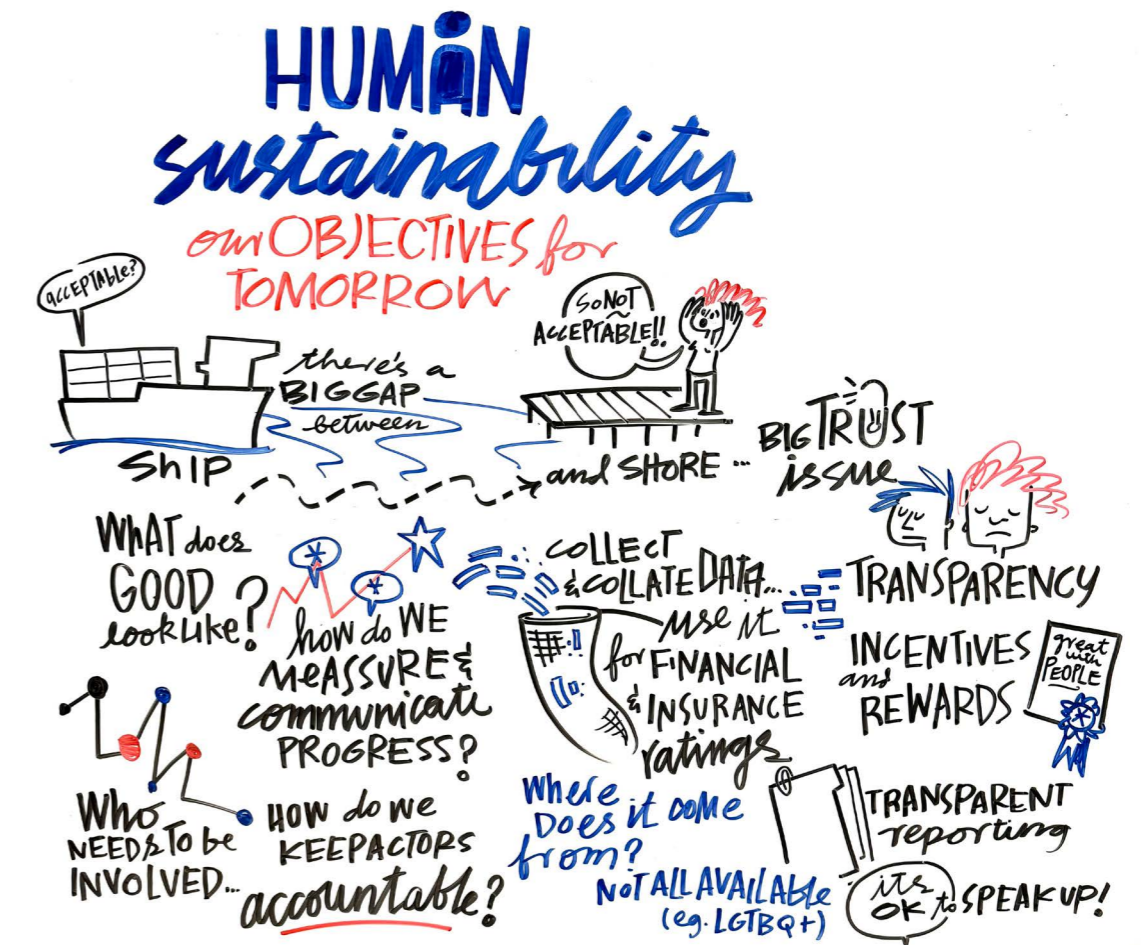 HUMAN
sustainability
our OBJECTIVES for
TOMORROW
ACCEPTAbLE?
SO NOT
ACCEPTABLE!!
there's a
BIG GAP
between
ShIP
and SHORE ...
BIG TRUST
issue
WHAT does
GOOD
look Like?
how do WE
MEASSURE &
communicate
PROGRESS?
COLLECT
& COLLATE DATA...
use it
for FINANCIAL
& INSURANCE
ratings
TRANSPARENCY
INCENTIVES
and
REWARDS
great
with
PEOPLE
Who
NEEDS To be
INVOLVED...
HOW do we
KEEP ACTORS
accountable?
Where
Does it come
from?
NOT ALL AVAILAbLe
(eg. LGTBQ+)
TRANSPARENT
reporting
its
OK to SPEAK UP!